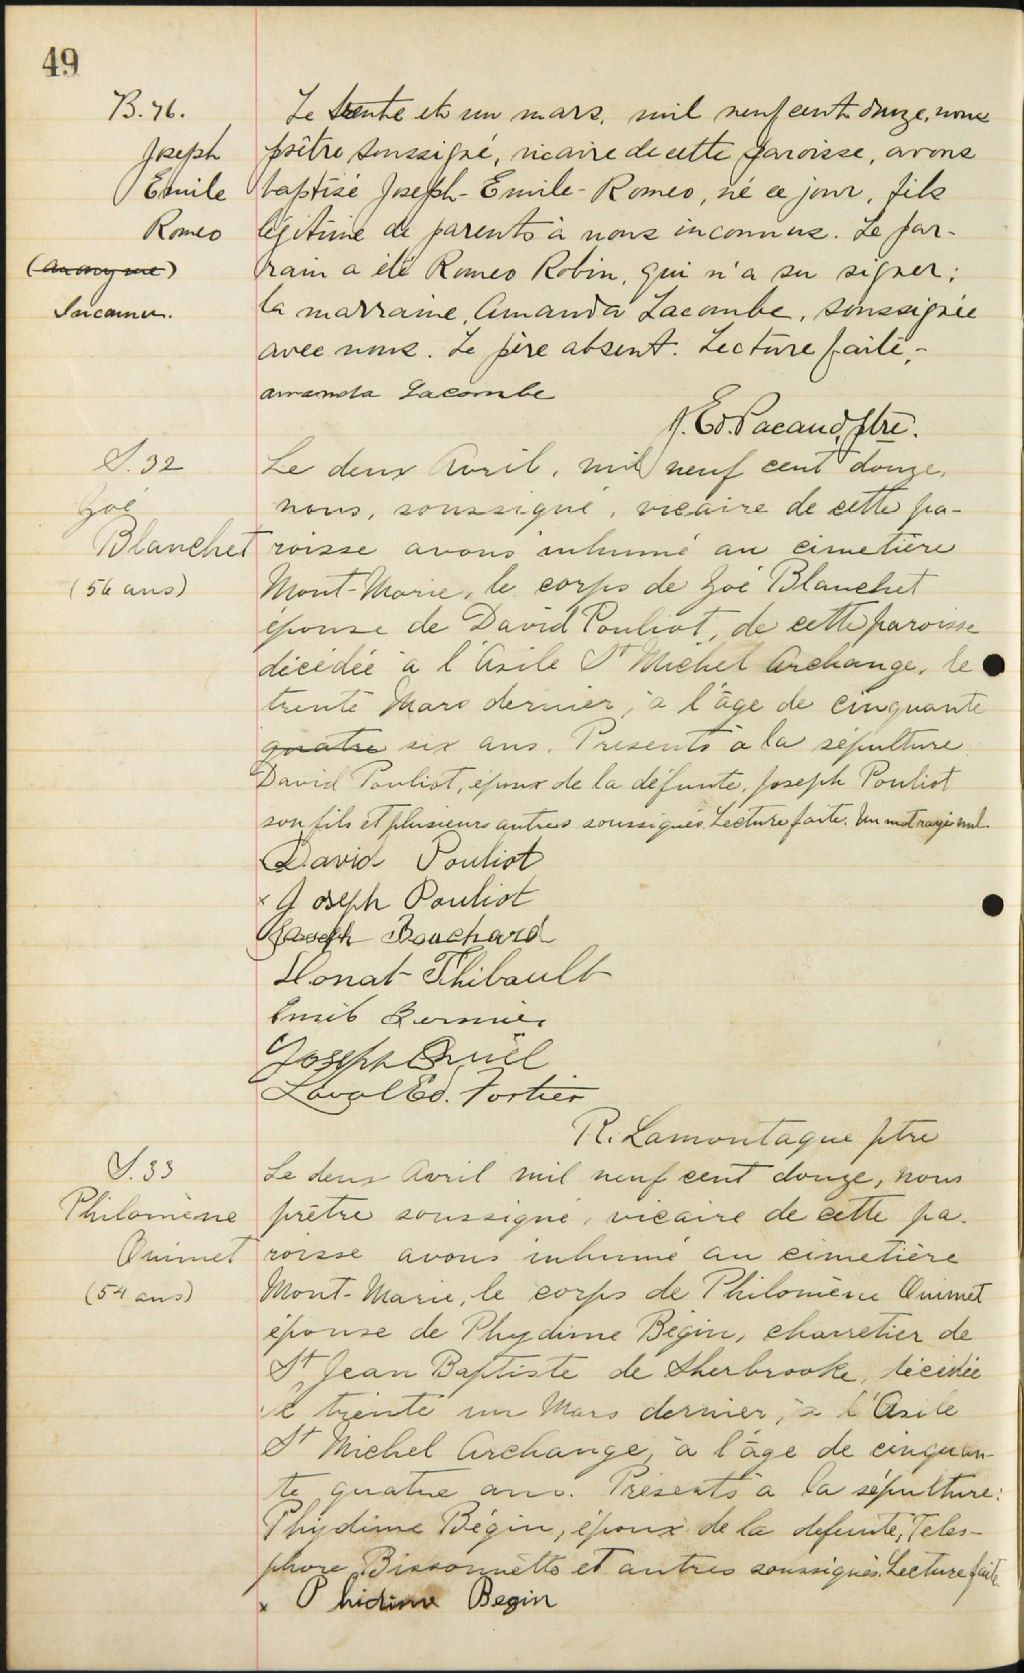 49
B. 76.
Joseph
Emile
Romeo
(anonyme)
Inconnu.
Le trente et un mars, mil neuf cent douze, nous
prêtre soussigné, vicaire de cette paroisse, avons
baptisé Joseph-Emile-Romeo, né ce jour, fils
légitime de parents à nous inconnus. Le par-
rain a été Romeo Robin, qui n'a su signer;
la marraine, Amanda Lacombe, soussignée
avec nous. Le père absent. Lecture faite.-
amanda Lacombe
J. Ed. Pacaud, ptre.
S. 32
Zoé
Blanchet
(56 ans)
Le deux Avril, mil neuf cent douze,
nous, soussigné, vicaire de cette pa-
roisse avons inhumé au cimetière
Mont-Marie, le corps de Zoé Blanchet
épouse de David Pouliot, de cette paroisse
décédée à l'Asile St Michel Archange, le
trente Mars dernier, à l'âge de cinquante
quatre six ans. Presents à la sépulture
David Pouliot, époux de la défunte, Joseph Pouliot
son fils et plusieurs autres soussignés. Lecture faite. Un mot rayé nul.
David Pouliot
x Joseph Pouliot
Joseph Bouchard
Donat Thibault
Emile Bernier
Joseph Quiel
Laval Ed. Fortier
R. Lamontagne ptre
S. 33
Philomène
Ouimet
(54 ans)
Le deux Avril mil neuf cent douze, nous
prêtre soussigné, vicaire de cette pa-
roisse avons inhumé au cimetière
Mont-Marie, le corps de Philomène Ouimet
épouse de Phydime Bégin, charretier de
St Jean Baptiste de Sherbrooke, décédée
le trente un Mars dernier, à l'Asile
St Michel Archange, à l'âge de cinquan-
te quatre ans. Présents à la sépulture:
Phydime Bégin, époux de la defunte, Teles-
phore Bissonnette et autres soussignés. Lecture faite.
x Phidime Begin